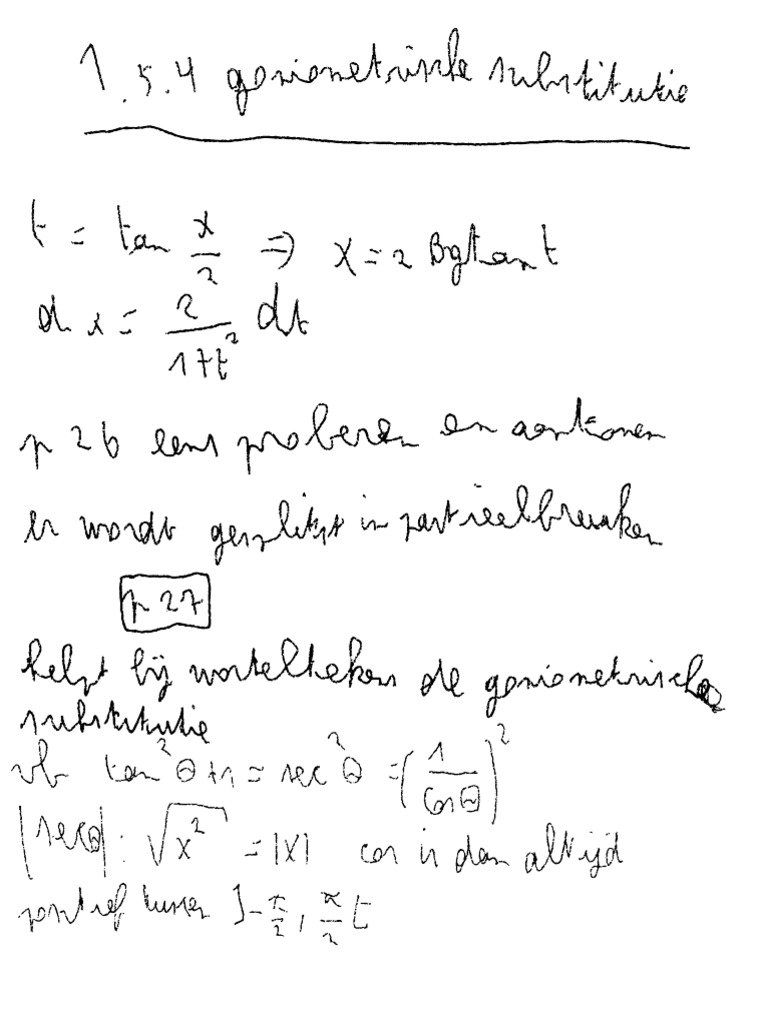 1.5.4 goniometrische substitutie
t = tan x/2 => x = 2 Bgtan t
dx = 2/(1+t²) dt
p 26 eens proberen en aantonen
er wordt gesplitst in partieelbreuken
p 27
helpt bij worteltekens de goniometrische
substitutie
vb tan²θ+1 = sec²θ = (1/cosθ)²
|secθ| : √x² = |x| cos is dan altijd
positief tussen ]-π/2, π/2[